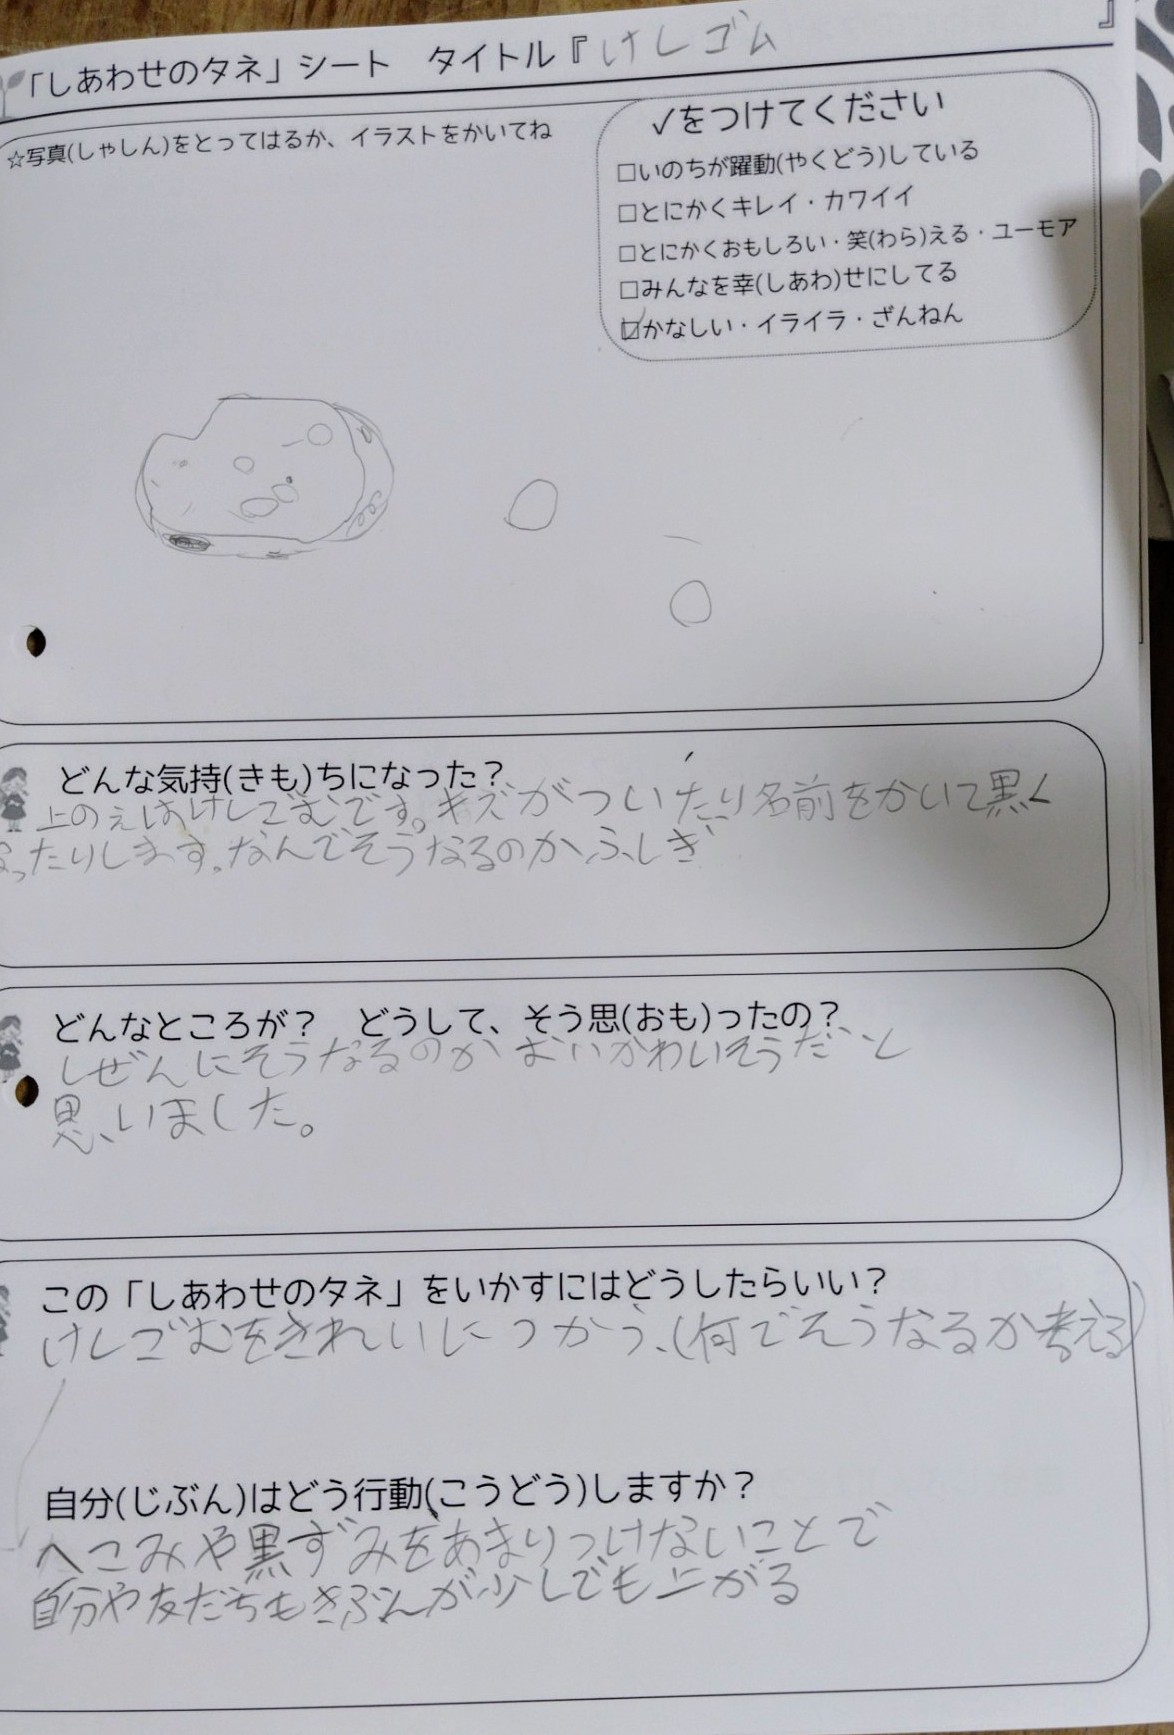 「しあわせのタネ」シート　タイトル『けしゴム』
☆写真(しゃしん)をとってはるか、イラストをかいてね
✓をつけてください
□いのちが躍動(やくどう)している
□とにかくキレイ・カワイイ
□とにかくおもしろい・笑(わら)える・ユーモア
□みんなを幸(しあわ)せにしてる
☑かなしい・イライラ・ざんねん
どんな気持(きも)ちになった？
上のえはけしごむです。キズがついたり名前をかいて黒く
なったりします。なんでそうなるのかふしぎ
どんなところが？　どうして、そう思(おも)ったの？
しぜんにそうなるのが かわいそうだと
思いました。
この「しあわせのタネ」をいかすにはどうしたらいい？
けしごむをきれいにつかう、(何でそうなるか考える)
自分(じぶん)はどう行動(こうどう)しますか？
へこみや黒ずみをあまりつけないことで
自分や友だちもきぶんが少しでも上がる